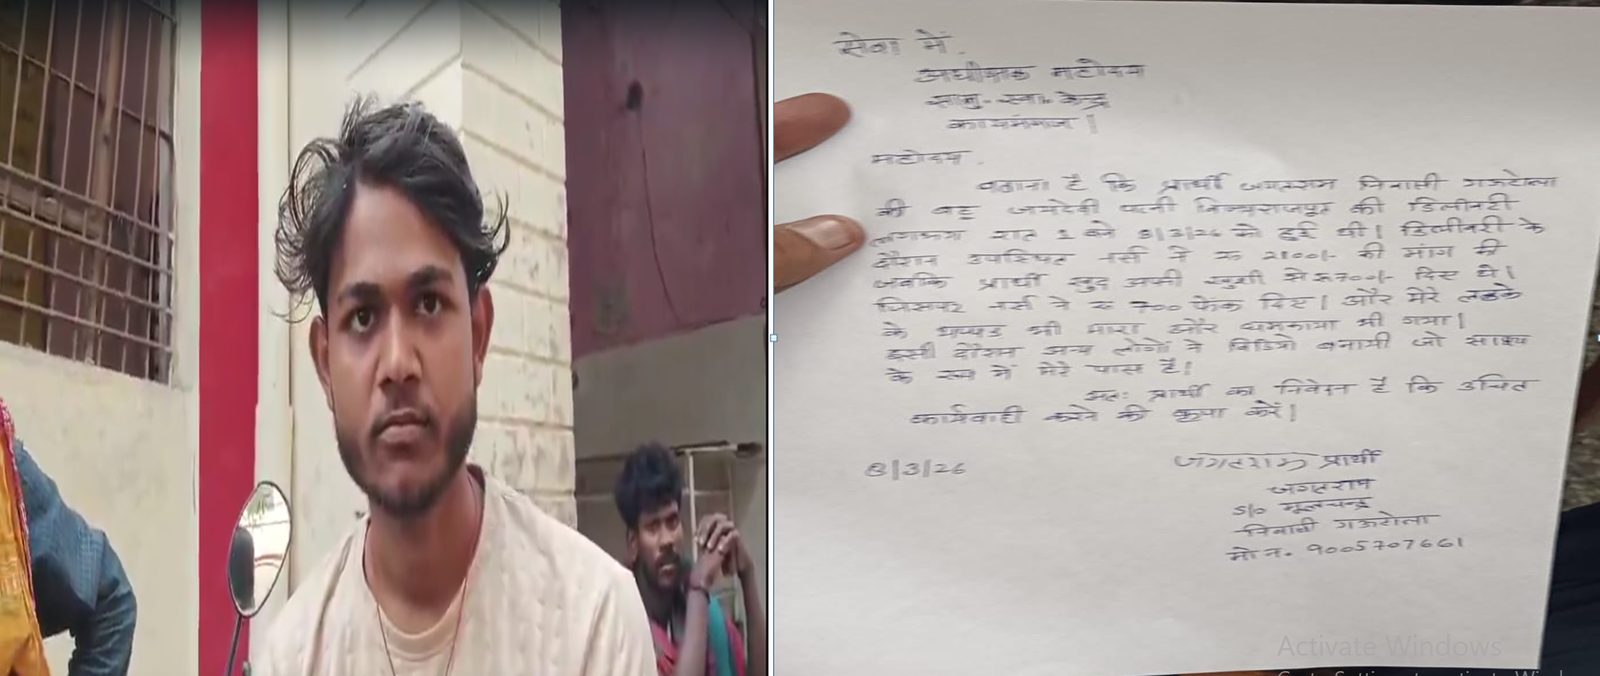 सेवा में.
अधीक्षक महोदय
सामु. स्वा. केन्द्र
कायमगंज |
महोदय.
बताना है कि प्रार्थी जगतराम निवासी गऊटोला
की बहू जमदेवी पत्नी विजयराजपूत की डिलीवरी
लगभग रात 1 बजे 8/3/26 को हुई थी | डिलीवरी के
दौरान उपस्थित नर्स ने रू 2100/- की मांग की
जबकि प्रार्थी खुद अपनी खुशी से रू 700/- दिए थे |
जिसपर नर्स ने रू 700 फेंक दिए | और मेरे लड़के
के थप्पड़ भी मारा और धमकाया भी गया |
इसी दौरान अन्य लोगों ने विडियो बनायी जो साक्ष्य
के रूप में मेरे पास है |
अतः प्रार्थी का निवेदन है कि उचित
कार्यवाही करने की कृपा करें |
8/3/26
जगतराम प्रार्थी
जगतराम
S/o मूलचन्द्र
निवासी गऊटोला
मो न. 9005707661
Activate Windows